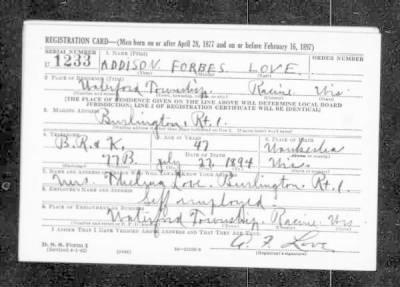 REGISTRATION CARD—(Men born on or after April 28, 1877 and on or before February 16, 1897)
SERIAL NUMBER
1. NAME (Print)
ORDER NUMBER
U 1233
ADDISON FORBES LOVE
(First) (Middle) (Last)
2. PLACE OF RESIDENCE (Print)
Waterford Township. Racine Wis.
(THE PLACE OF RESIDENCE GIVEN ON THE LINE ABOVE WILL DETERMINE LOCAL BOARD
JURISDICTION; LINE 2 OF REGISTRATION CERTIFICATE WILL BE IDENTICAL)
3. MAILING ADDRESS
Burlington, Rt. 1.
4. TELEPHONE
5. AGE IN YEARS
6. PLACE OF BIRTH
B.R. & K.
47
DATE OF BIRTH
77B July 27, 1894 Wis.
Mrs. Thelma Love, Burlington, Rt. 1.
8. EMPLOYER'S NAME AND ADDRESS
Self employed
9. PLACE OF EMPLOYMENT OR BUSINESS
Waterford Township Racine Wis
I AFFIRM THAT I HAVE VERIFIED ABOVE ANSWERS AND THAT THEY ARE TRUE.
D. S. S. Form 1
(Revised 4-1-42) (over)
A. F. Love
(Registrant's signature)